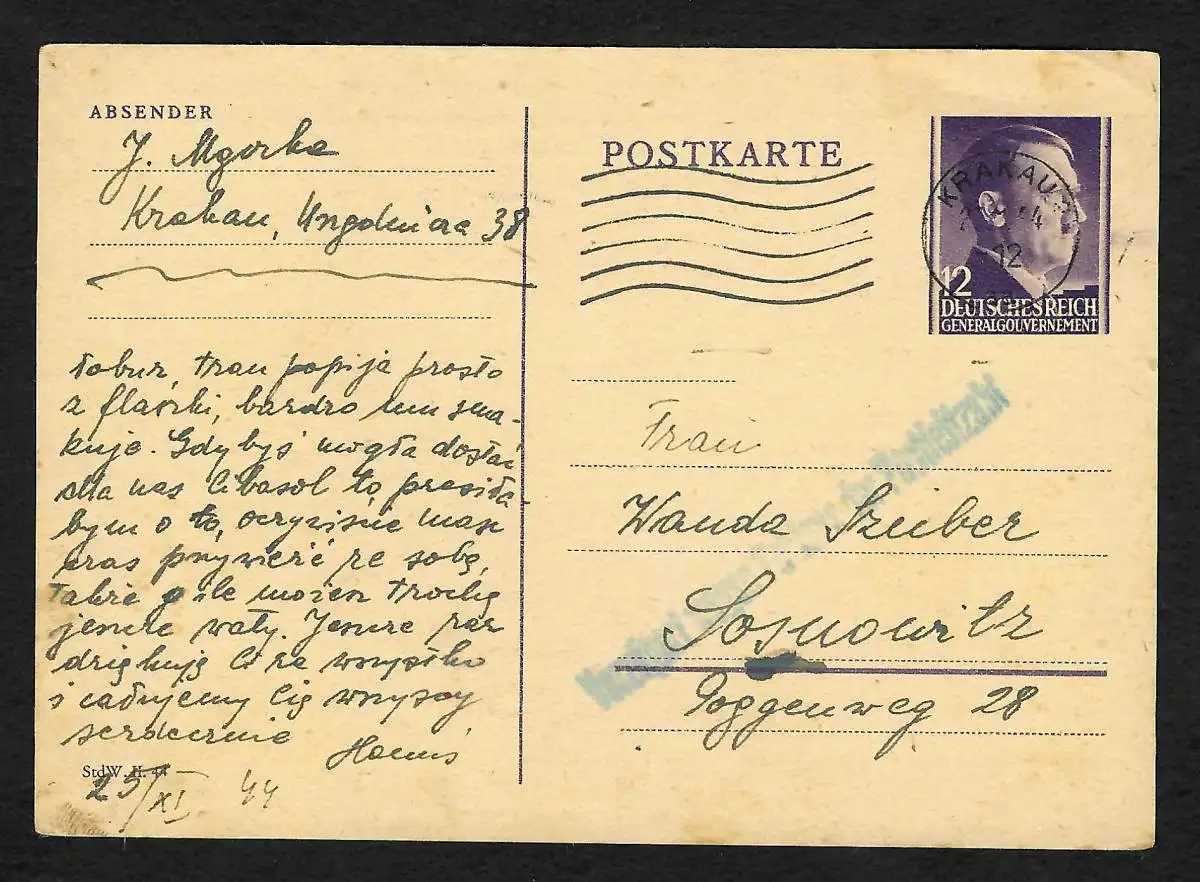 ABSENDER
J. Mgorka
Krakau, 38
POSTKARTE
KRAKAU
12
12
DEUTSCHES REICH
GENERALGOUVERNEMENT
tobur, tran popija prosto
z flaszki, bardzo mu sma-
kuje. Gdybyś mogła dostać
dla nas Cibasol to prosiła
bym o to, oczyiście masz
zaraz przywieźć ze sobą,
także o ile możesz trochę
jeszcze waty. Jeszcze raz
dziękuję Ci za wszystko
i całujemy Cię wszyscy
serdecznie
StdW. II. 44
25/XI 44
Frau
Wanda Szeiber
Sosnowitz
Poggenweg 28